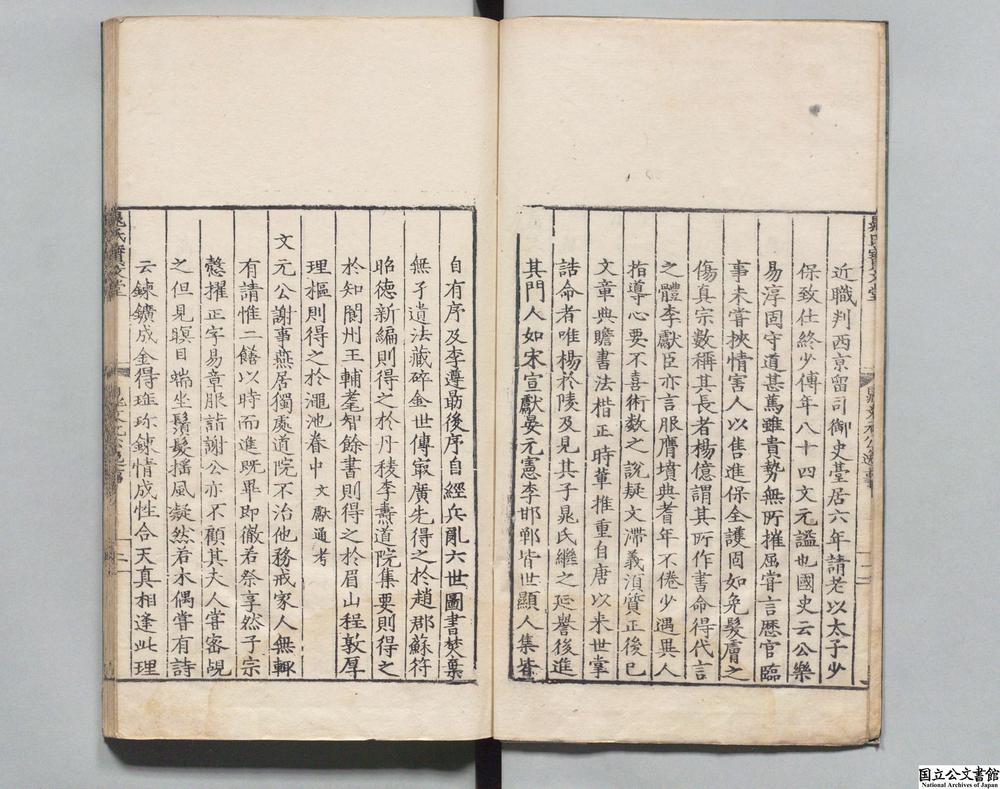 近職判西京留司御史臺居六年請老以太子少
保致仕終少傳年八十四文元謚也國史云公樂
易淳固守道甚篤雖貴勢無所摧屈嘗言歷官臨
事未嘗挾情害人以售進保全護固如免髮膚之
傷真宗數稱其長者楊億謂其所作書命得代言
之體李獻臣亦言服膺墳典耆年不倦少遇異人
指導心要不喜術數之說疑文滯義須質正後已
文章典贍書法楷正時輩推重自唐以來世掌
誥命者唯楊於陵及見其子晁氏繼之延譽後進
其門人如宋宣獻晏元憲李邯鄲皆世顯人集者
自有序及李遵勗後序自經兵亂六世圖書焚棄
無孑遺法藏碎金世傳㝡廣先得之於趙郡蘇符
昭德新編則得之於丹稜李燾道院集要則得之
於知閬州王輔耄智餘書則得之於眉山程敦厚
理樞則得之於澠池眷中 文獻通考
文元公謝事燕居獨處道院不治他務戒家人無輒
有請惟二饍以時而進旣畢即徹若祭享然子宗
愨擢正字易章服詣謝公亦不顧其夫人嘗密覘
之但見瞑目端坐鬚髮搖風凝然若木偶嘗有詩
云鍊鑛成金得珤珎鍊情成性合天真相逢此理
晁氏寶文堂
二
国立公文書館
National Archives of Japan